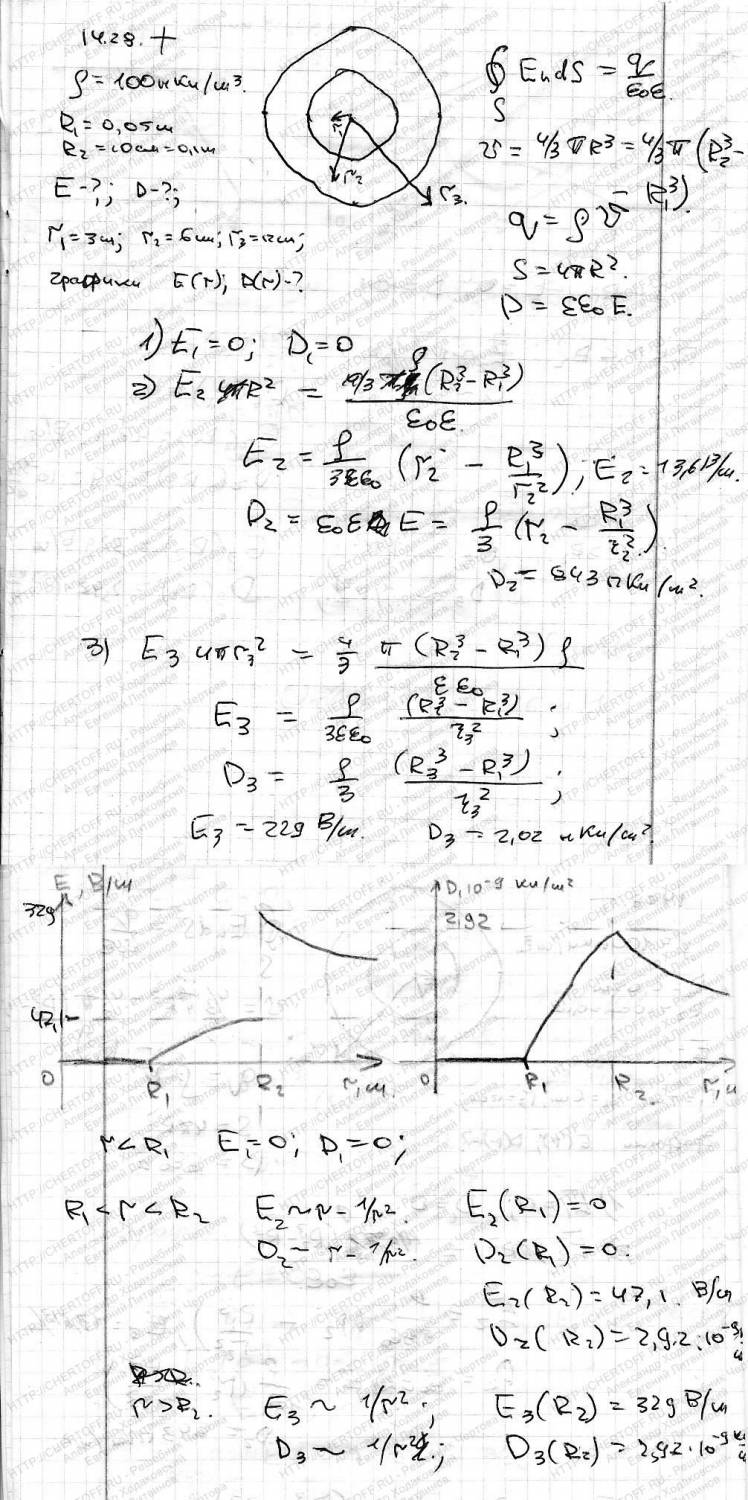 14.28. +
ρ = 100 нКл/м³.
R₁ = 0,05 м
R₂ = 10 см = 0,1 м
E - ?; D - ?;
r₁ = 3 см; r₂ = 6 см; r₃ = 12 см;
графики E(r); D(r) - ?
r₁
r₂
r₃.
∮ EndS = q/ε₀ε.
S
v = 4/3 πR³ = 4/3 π (R₂³ -
- R₁³).
q = ρv
S = 4πR².
D = εε₀E.
1) E₁ = 0; D₁ = 0
2) E₂ 4πR² = 4/3 π ρ (R₂³ - R₁³) / ε₀ε.
E₂ = ρ/3εε₀ (r₂ - R₁³/r₂²); E₂ = 13,6 В/м.
D₂ = ε₀ε E = ρ/3 (r₂ - R₁³/r₂²).
D₂ = 843 пКл/м².
3) E₃ 4πr₃² = 4/3 π (R₂³ - R₁³) ρ / εε₀
E₃ = ρ/3εε₀ (R₂³ - R₁³)/r₃² ;
D₃ = ρ/3 (R₃³ - R₁³)/r₃² ;
E₃ = 229 В/м. D₃ = 2,02 нКл/м².
E, В/м
329
47,1
0
R₁
R₂
r, м.
D, 10⁻⁹ Кл/м²
2,92
0
R₁
R₂
r, м
r < R₁ E₁ = 0; D₁ = 0;
R₁ < r < R₂ E₂ ~ r - 1/r². E₂(R₁) = 0
D₂ ~ r - 1/r². D₂(R₁) = 0.
E₂(R₂) = 47,1. В/м
D₂(R₂) = 2,92·10⁻⁹
r > R₂. E₃ ~ 1/r² ; E₃(R₂) = 329 В/м
D₃ ~ 1/r² ; D₃(R₂) = 2,92·10⁻⁹ Кл/м
HTTP://CHERTOFF.RU - Решебник Чертова
Александр Ходаковский
Евгений Питанов